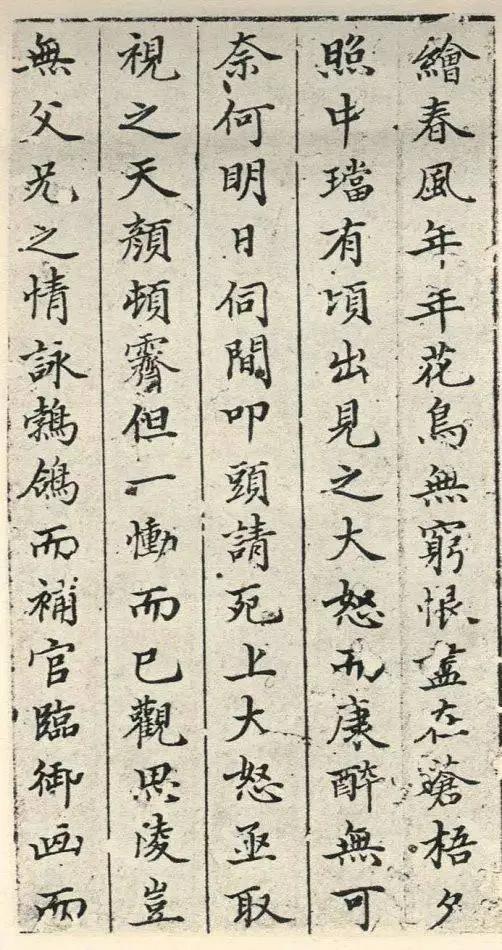 繪春風年年花鳥無窮恨盡在蒼梧夕
照中璫有頃出見之大怒而康醉無可
奈何明日伺間叩頭請死上大怒亟取
視之天顏頓霽但一慟而已觀思陵豈
無父兄之情詠鶺鴿而補官臨御画而